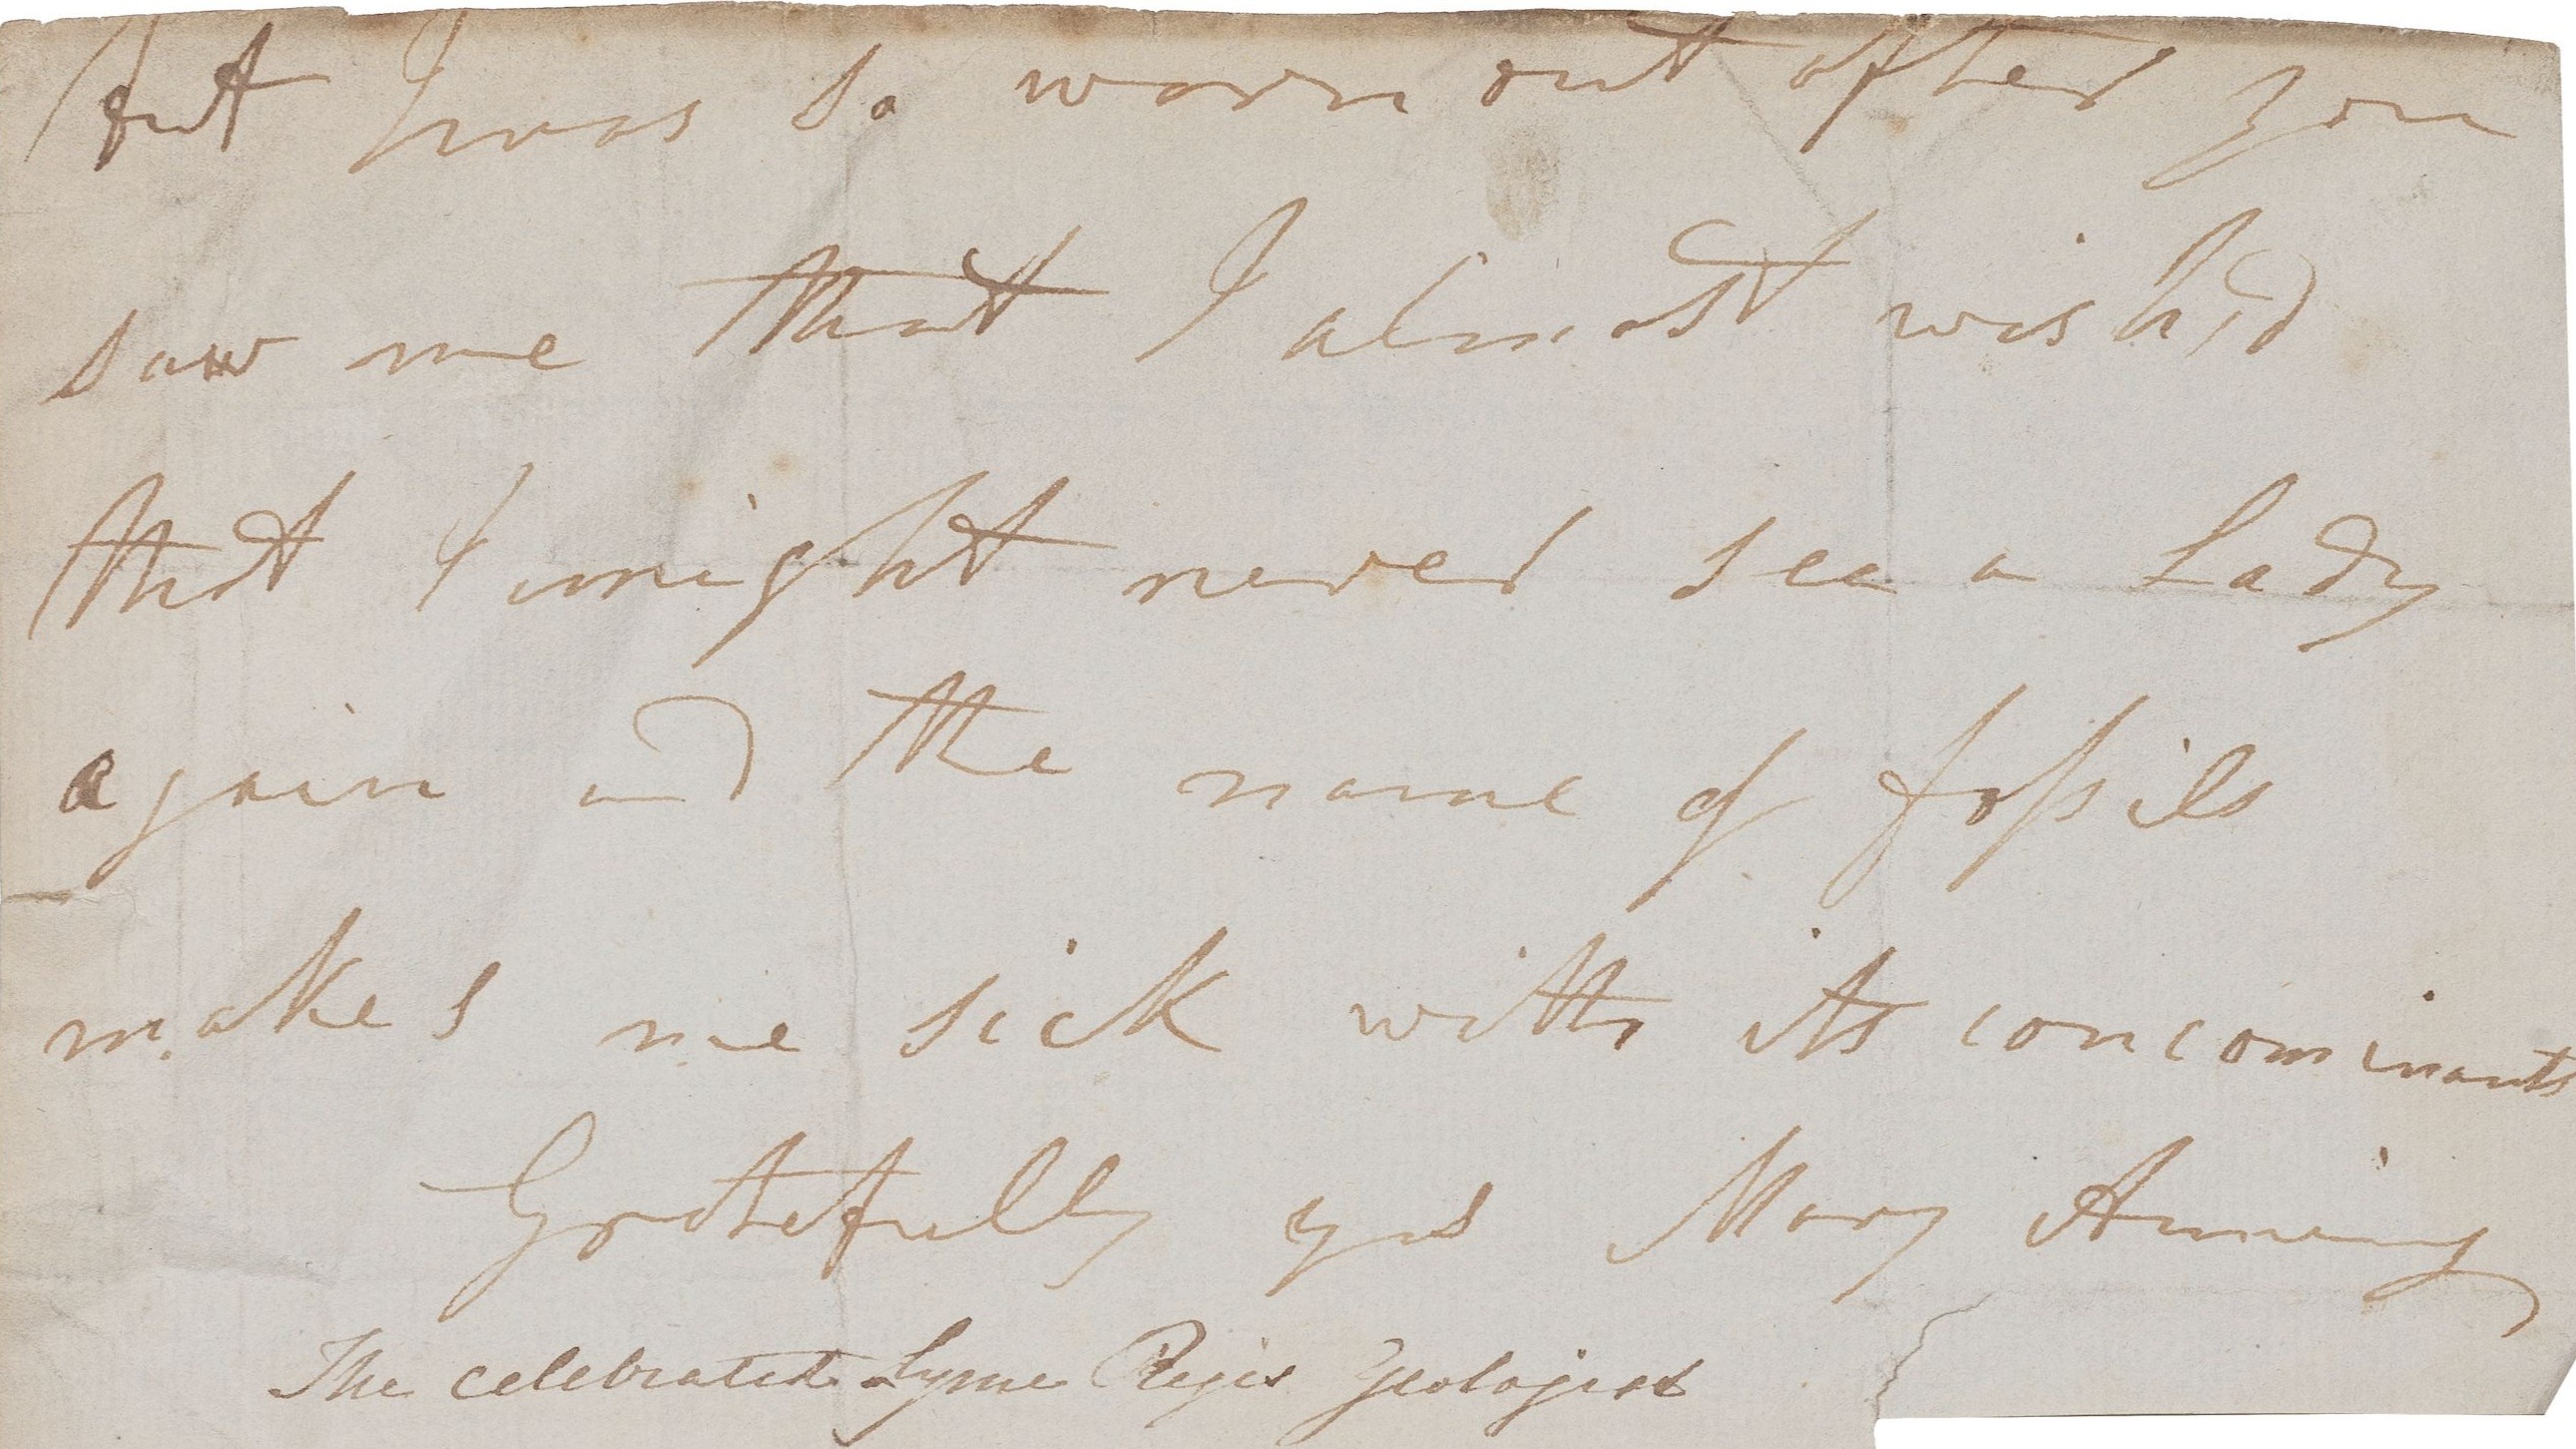 but I was so worn out after you
saw me that I almost wish,d
that I might never see a Lady
again and the name of fossils
makes me sick with its concominants
Gratefully yrs Mary Anning
The celebrated Lyme Regis Geologist